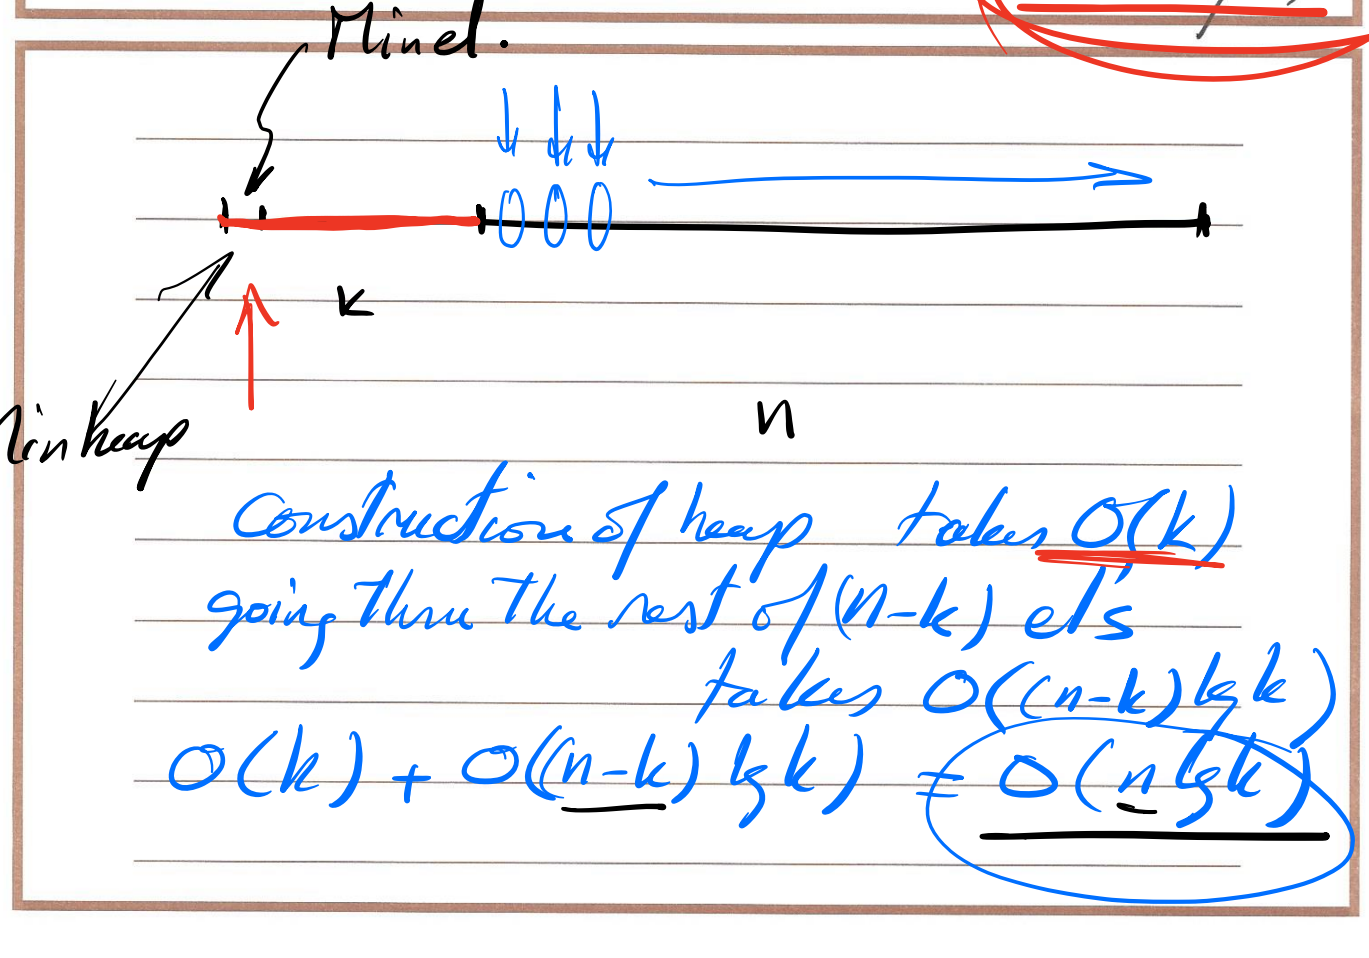 Min el.
k
Min heap
n
Construction of heap takes O(k)
going thru the rest of (n-k) el's
takes O((n-k) lg k)
O(k) + O((n-k) lg k) = O(n lg k)